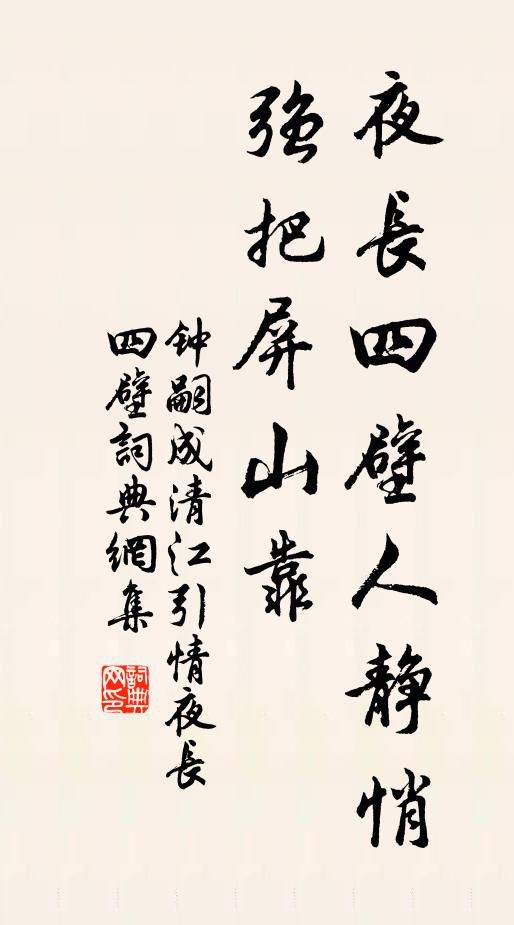 夜長四壁人静悄
強把屏山靠
钟嗣成清江引情夜長
四壁詞典網集
詞典
网印